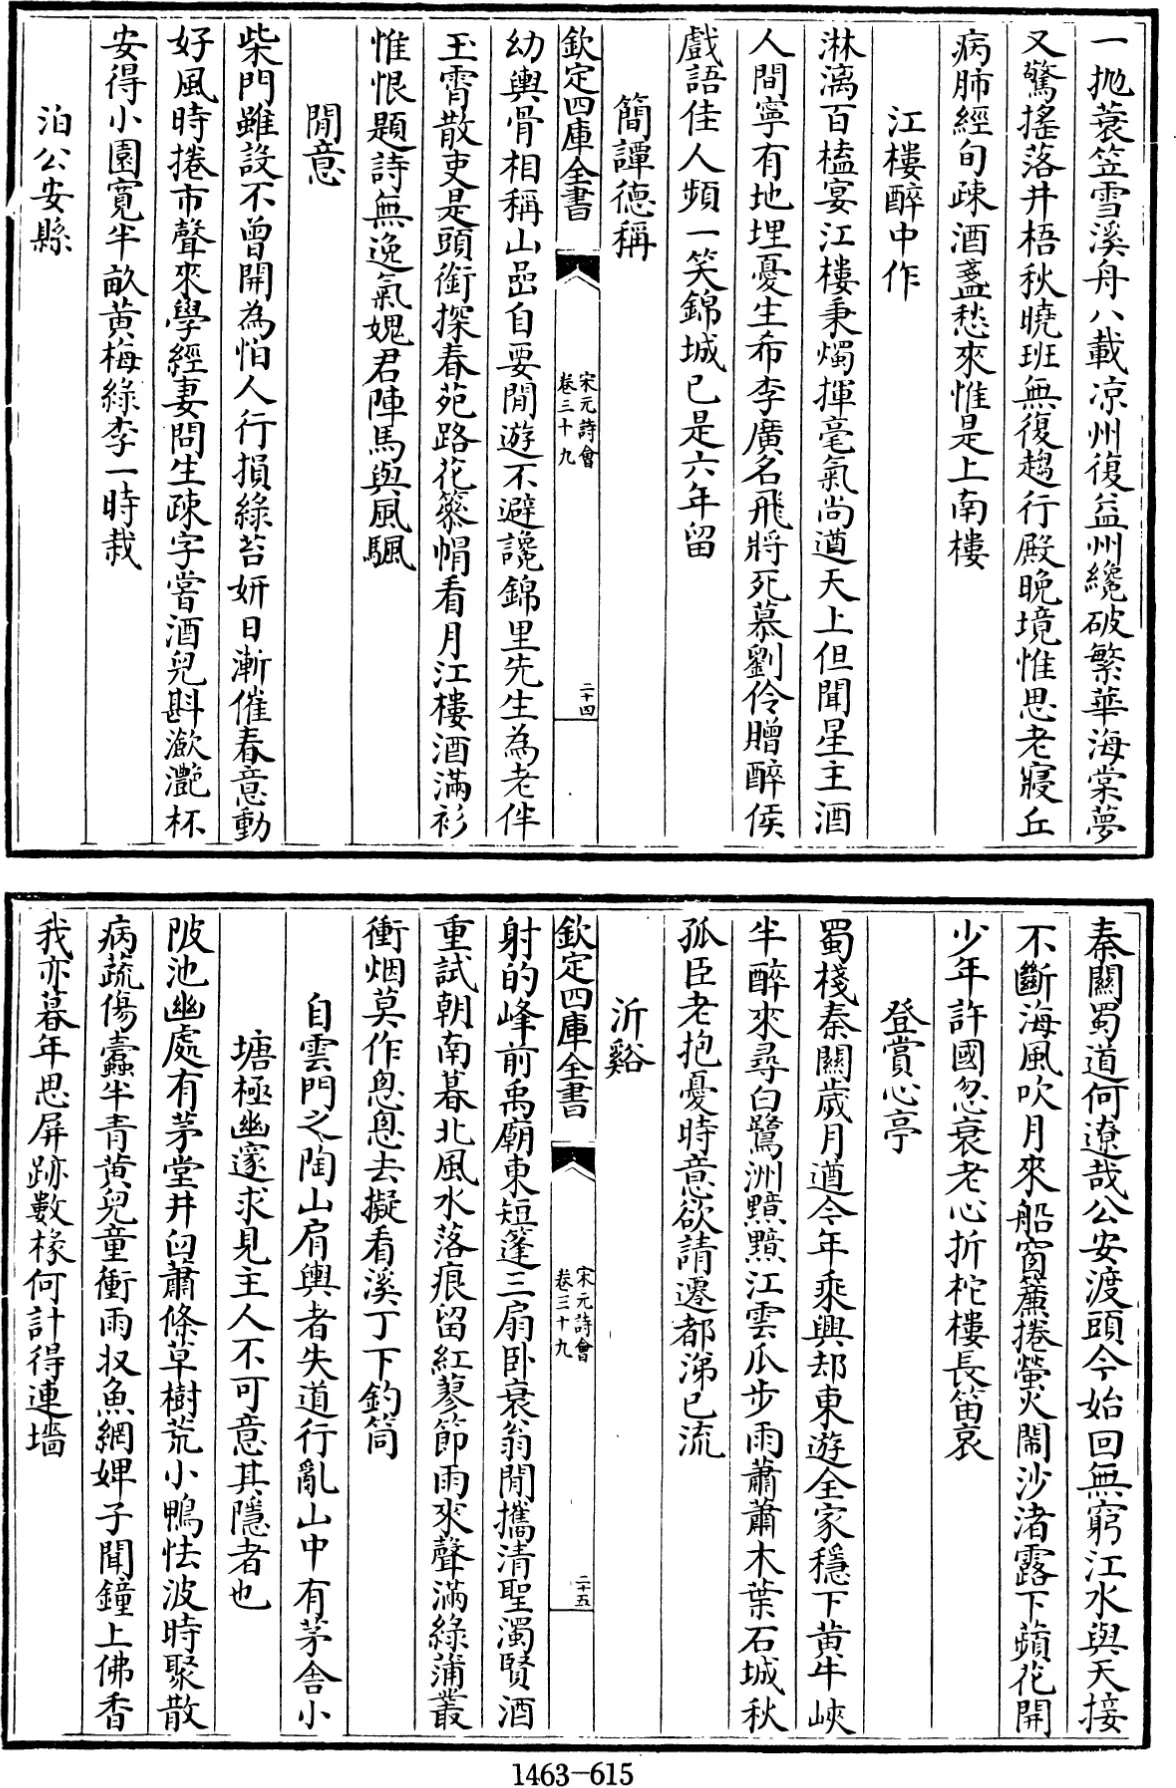 一抛蓑笠雪溪舟八載凉州復益州纔破繁華海棠夢
又驚搖落井梧秋曉班無復趨行殿晚境惟思老寢丘
病肺經旬疎酒盞愁來惟是上南樓
江樓醉中作
淋漓百榼宴江樓秉燭揮毫氣尚遒天上但聞星主酒
人間寧有地埋憂生希李廣名飛將死慕劉伶贈醉侯
戲語佳人頻一笑錦城已是六年留
簡譚德稱
欽定四庫全書
宋元詩會
卷三十九
二十四
幼輿骨相稱山嵒自要閒遊不避讒錦里先生為老伴
玉霄散吏是頭銜探春苑路花篸帽看月江樓酒滿衫
惟恨題詩無逸氣媿君陣馬與風颿
閒意
柴門雖設不曾開為怕人行損綠苔妍日漸催春意動
好風時捲市聲來學經妻問生疎字嘗酒兒斟瀲灔杯
安得小園寛半畝黄梅綠李一時栽
泊公安縣
秦關蜀道何遼哉公安渡頭今始回無窮江水與天接
不斷海風吹月來船窗簾捲螢火閙沙渚露下蘋花開
少年許國忽衰老心折柁樓長笛哀
登賞心亭
蜀棧秦關歲月遒今年乘興却東遊全家穩下黄牛峽
半醉來尋白鷺洲黯黯江雲瓜步雨蕭蕭木葉石城秋
孤臣老抱憂時意欲請遷都涕已流
沂谿
欽定四庫全書
宋元詩會
卷三十九
二十五
射的峰前禹廟東短篷三扇卧衰翁閒攜清聖濁賢酒
重試朝南暮北風水落痕留紅蓼節雨來聲滿綠蒲叢
衝烟莫作怱怱去擬看溪丁下釣筒
自雲門之陶山肩輿者失道行亂山中有茅舍小
塘極幽邃求見主人不可意其隱者也
陂池幽處有茅堂井臼蕭條草樹荒小鴨怯波時聚散
病蔬傷蠧半青黄兒童衝雨収魚網婢子聞鐘上佛香
我亦暮年思屏跡數椽何計得連墻
1463—615